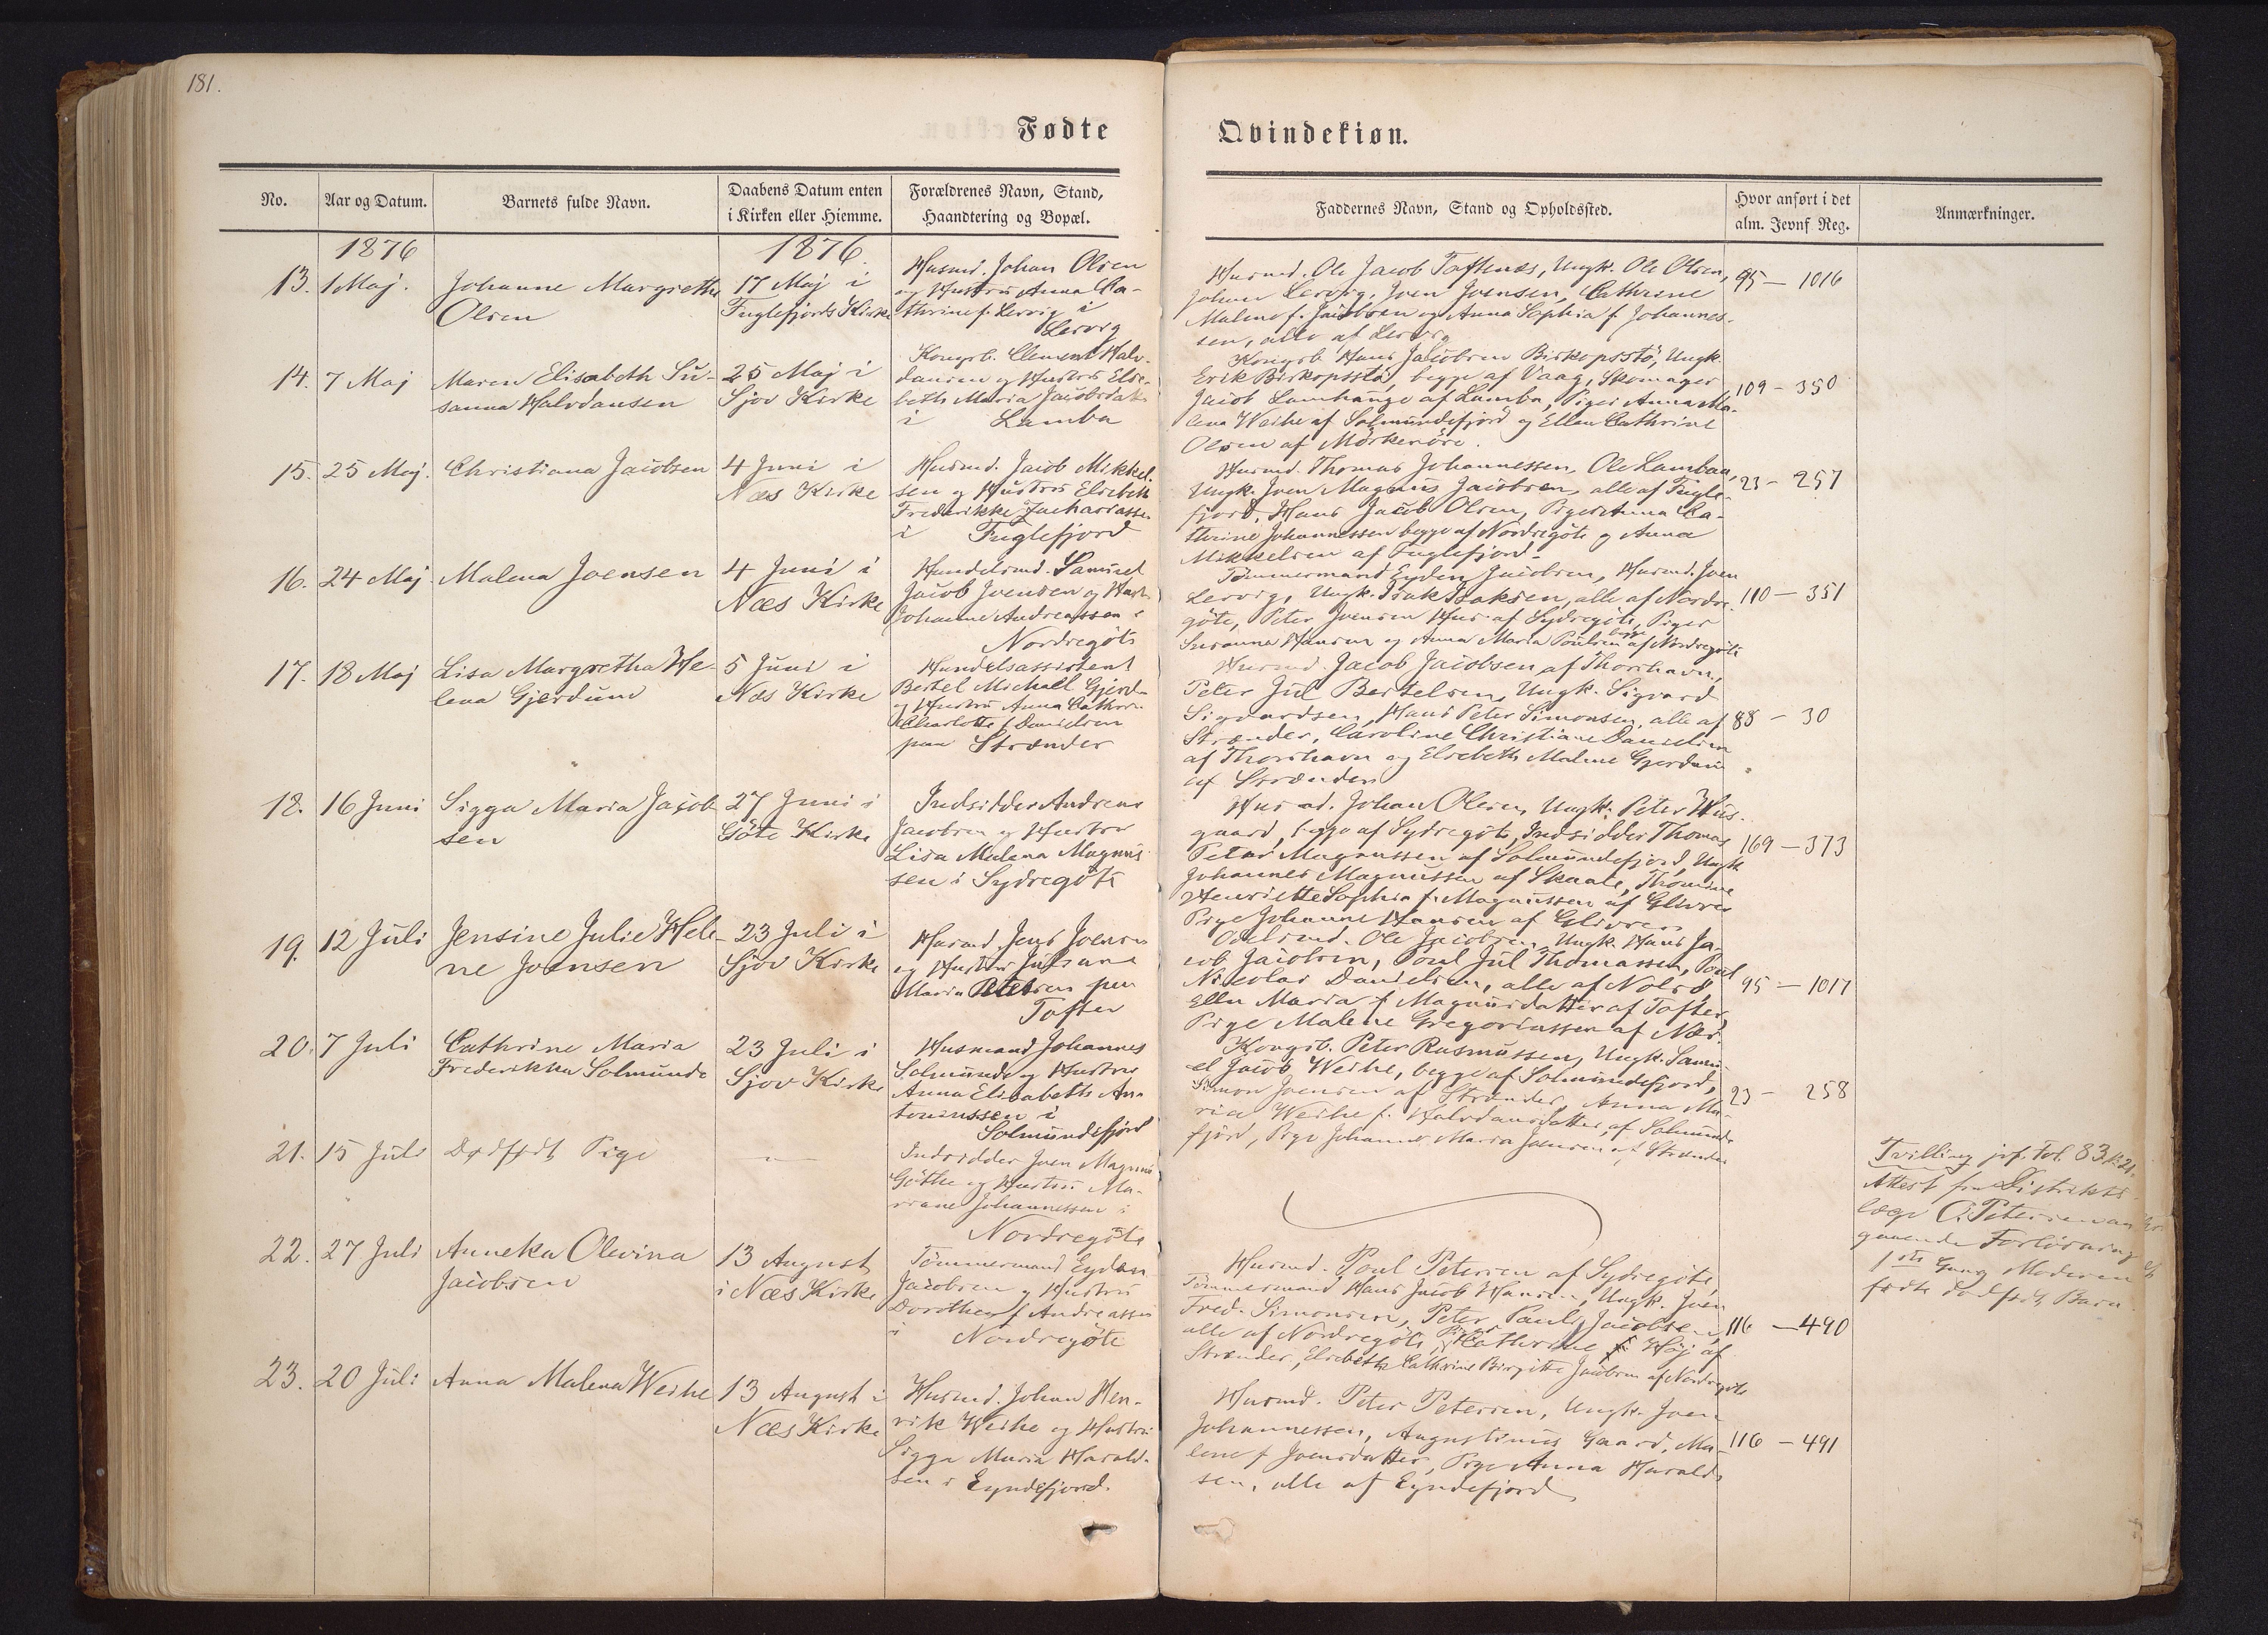 181.
Fødte
Qvindekiøn.
No.
Aar og Datum.
Barnets fulde Navn.
Daabens Datum enten
i Kirken eller Hiemme.
Forældrenes Navn, Stand,
Haandtering og Bopæl.
Faddernes Navn, Stand og Opholdssted.
Hvor anført i det
alm. Jevnf. Reg.
Anmærkninger.
1876
1876.
13.
1 Maj.
Johanne Margrethe
Olsen
17 Maj i
Fuglefjords Kirke
Husmd. Johan Olsen
og Hustru Anna Ca-
thrine f. Lervig i
Lervig
Husmd. Ole Jacob Toftenæs, Ungk. Ole Olsen,
Johan Lervig, Joen Joensen, Cathrine
Malene f. Jacobsen og Anna Sophia f. Johannes-
sen, alle af Lervig
95 - 1016
14.
7 Maj
Maren Elisabeth Su-
sanna Halvdansen
25 Maj i
Sjov Kirke
Kongsb. Clement Halv-
dansen og Hustru Else-
beth Maria Jacobsdatr
i Lamba
Kongsb. Hans Jacobsen Biskopsstö, Ungk.
Erik Biskopsstö, begge af Vaag, Skomager
Jacob Lamhauge af Lamba, Piger Anna Ma-
lena Weihe af Solmundefjord og Ellen Cathrine
Olsen af Mörkenöre.
109 - 350
15.
25 Maj.
Christiana Jacobsen
4 Juni i
Næs Kirke
Husmd. Jacob Mikkel-
sen og Hustru Elsebeth
Frederikke Zachariassen
i Fuglefjord
Husmd. Thomas Johannessen, Ole Lambaa,
Ungk. Joen Magnus Jacobsen, alle af Fugle-
fjord, Hans Jacob Olsen, Piger Anna Ca-
thrine Johannessen begge af Nordregöte og Anna
Mikkelsen af Fuglefjord.
23 - 257
16.
24 Maj.
Malena Joensen
4 Juni i
Næs Kirke
Handelsmd. Samuel
Jacob Joensen og Hustr.
Johanne Andreassen i
Nordregöte
Tømmermand Eyden Jacobsen, Husmd. Joen
Lervig, Ungk. Isak Isaksen, alle af Nordre-
göte, Peter Joensen Hus af Sydregöte, Piger
Susanne Hansen og Anna Maria Poulsen begge af Nordregöte
110 - 351
17.
18 Maj
Lisa Margretha He-
lena Gjerdum
5 Juni i
Næs Kirke
Handelsassistent
Bertel Michael Gjerd-
og Hustru Anna Cathrin
Charlotte f. Danielsen
paa Strænder
Husmd. Jacob Jacobsen af Thorshavn,
Peter Jul Bertelsen, Ungk. Sigvard
Sigvardsen, Hans Peter Simonsen, alle af
Strænder, Caroline Christiane Danielsen
af Thorshavn og Elsebeth Malene Gjerdum
af Strænder
88 - 30
18.
16 Juni
Sigga Maria Jacob-
sen
27 Juni i
Göte Kirke
Indsidder Andreas
Jacobsen og Hustru
Lisa Malena Magnus-
sen i Sydregöte
Husmd. Johan Olsen, Ungk. Peter Hus-
gaard, begge af Sydregöte, Indsidder Thomas
Peter Magnussen af Solmundefjord, Ungk
Johannes Magnussen af Skaale, Thomine
Henriette Sophia f. Magnussen af Glivre
Pige Johanne Hansen af Glivre
169 - 373
19.
12 Juli
Jensine Julie Hele-
ne Joensen
23 Juli i
Sjov Kirke
Husmd. Jens Joensen
og Hustru Julsane
Maria Petersen paa
Tofter
Odelsmd. Ole Jacobsen, Ungk. Hans Ja-
cob Jacobsen, Poul Jul Thomassen, Poul
Nicolai Danielsen, alle af Nolsö,
Ellen Maria f. Magnusdatter af Tofter,
Pige Malene Gregoriussen af Næs.
95 - 1017
20.
7 Juli
Cathrine Maria
Frederikka Solmunde
23 Juli i
Sjov Kirke
Husmand Johannes
Solmunde og Hustru
Anna Elisabeth An-
toniussen i
Solmundefjord
Kongsb. Peter Rasmussen, Ungk. Samu-
el Jacob Weihe, begge af Solmundefjord,
Simon Joensen af Strænder, Anna Ma-
ria Weihe f. Halvdansdatter, af Solmunde-
fjord, Pige Johanne Maria Joensen af Strænder
23 - 258
21.
15 Juli
Dødfødt Pige
Indsidder Joen Magnus
Göthe og Hustru Ma-
riane Johannessen i
Nordregöte
Tvilling jvf. Fol. 83 No 21.
Attest fra Distrikts-
læge C. Petersen an-
gaaende Forløsning
1ste Gang Moderen
fødte dødfødt Barn
22.
27 Juli
Anneka Olevina
Jacobsen
13 August
i Næs Kirke
Tömmermand Eyden
Jacobsen og Hustru
Dorothea f. Andreassen
i Nordregöte
Husmd. Poul Petersen af Sydregöte,
Tømmermand Hans Jacob Hansen, Ungk. Joen
Fred. Simonsen, Peter Pauli Jacobsen
alle af Nordregöte, Piger Cathrine f. Höj af
Strænder, Elsebeth Cathrine Birgitte Jacobsen af Nordregöte
116 - 490
23.
20 Juli
Anna Malena Weihe
13 August i
Næs Kirke
Husmd. Johan Hen-
rik Weihe og Hustru
Sigga Maria Harald-
sen i Eyndefjord.
Husmd. Peter Petersen, Ungk. Joen
Johannessen, Augustinus Gaard, Ma-
lene f. Joensdatter, Pige Anna Harald-
sen, alle af Eyndefjord
116 - 491